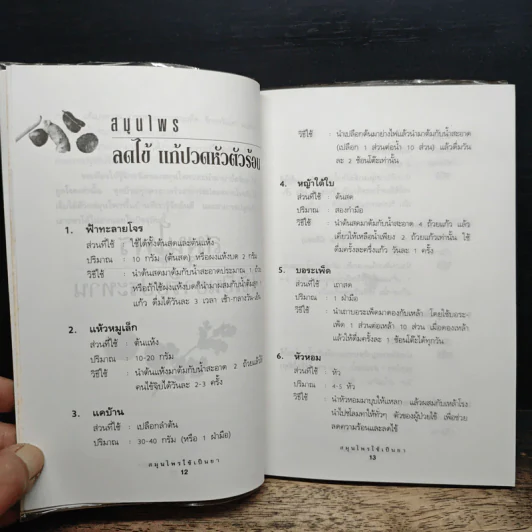 สมุนไพร
ลดไข้ แก้ปวดหัวตัวร้อน
1. ฟ้าทะลายโจร
ส่วนที่ใช้ : ใช้ได้ทั้งต้นสดและต้นแห้ง
ปริมาณ : 10 กรัม (ต้นสด) หรือผงแห้งบด 2 กรัม
วิธีใช้ : นำต้นสดมาต้มกับน้ำสะอาดประมาณ 1 ถ้วย
หรือถ้าใช้ผงแห้งบดก็นำมาผสมกับน้ำต้มสุก
แก้ว ดื่มได้วันละ 3 เวลา เช้า-กลางวัน-เย็น
2. แห้วหมูเล็ก
ส่วนที่ใช้ : ต้นแห้ง
ปริมาณ : 10-20 กรัม
วิธีใช้ : นำต้นแห้งมาต้มกับน้ำสะอาด 2 ถ้วย
คนไข้จิบได้วันละ 2-3 ครั้ง
3. แคบ้าน
ส่วนที่ใช้ : เปลือกลำต้น
ปริมาณ : 30-40 กรัม (หรือ 1 ฝ่ามือ)
สมุนไพรใช้เป็นยา
12
วิธีใช้ : นำเปลือกต้นมาย่างไฟแล้วนำมาต้มกับน้ำสะอาด
(เปลือก 1 ส่วนต่อน้ำ 10 ส่วน) แล้วดื่มวัน
ละ 2 ช้อนโต๊ะเท่านั้น
4. หญ้าใต้ใบ
ส่วนที่ใช้ : ต้นสด
ปริมาณ : สองกำมือ
วิธีใช้ : นำต้นสดมาต้มกับน้ำสะอาด 4 ถ้วยแก้ว แล้ว
เคี่ยวให้เหลือน้ำเพียง 2 ถ้วยแก้วเท่านั้น ใช้
ดื่มครั้งละครึ่งแก้ว วันละ 1 ครั้ง
5. บอระเพ็ด
ส่วนที่ใช้ : เถาสด
ปริมาณ : 1 ฝ่ามือ
วิธีใช้ : นำเถาบอระเพ็ดมาดองกับเหล้า โดยใช้บอระ-
เพ็ด 1 ส่วนต่อเหล้า 10 ส่วน เมื่อดองเหล้า
แล้วให้ดื่มครั้งละ 1 ช้อนโต๊ะได้ทุกวัน
6. หัวหอม
ส่วนที่ใช้ : หัว
ปริมาณ : 4-5 หัว
วิธีใช้ : นำหัวหอมมาบุบให้แหลก แล้วผสมกับเหล้าโรง
นำไปชโลมทาให้ทั่วๆ ตัวของผู้ป่วยไข้ เพื่อช่วย
ลดความร้อนและลดไข้
สมุนไพรใช้เป็นยา
13